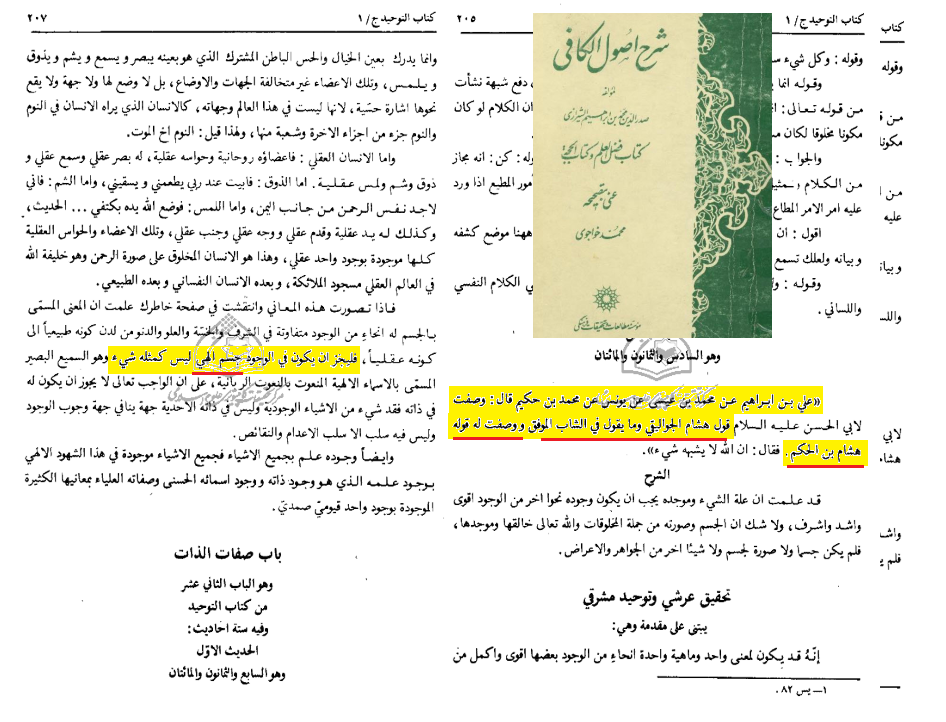 كتاب التوحيد ج/ ١
٢٠٥
وقوله : وكل شيء
وقوله انما
، دفع شبهة نشأت
من قوله تعالى :
ان الكلام لو كان
مكونا مخلوقا لكان
والجواب :
وله : كن : انه مجاز
من الكلام
أمور المطبع اذا ورد
عليه امر الامر المطاع
اقول : ان
ههنا موضع كشفه
وبيانه ولعلك تسمع
وقوله :
ي الكلام النفسي
واللساني .
شرح اصول الكافي
مؤلفه
صدر الدين محمد بن ابراهيم الشيرازي
كتاب فضل العلم وكتاب الحجة
عني بتصحيحه
محمد خواجوى
مؤسسه مطالعات وتحقيقات فرهنگى
وهو السادس والثمانون والمائتان
«علي بن ابراهيم عن محمد بن عيسى عن يونس عن محمد بن حكيم قال : وصفت
لابي الحسن عليه السلام قول هشام الجواليقي وما يقول في الشاب الموفق ووصفت له قوله
هشام بن الحكم . فقال : ان الله لا يشبهه شيء».
الشرح
قد علمت ان علة الشيء وموجده يجب ان يكون وجوده نحوا اخر من الوجود اقوى
واشد واشرف، ولا شك ان الجسم وصورته من جملة المخلوقات والله تعالى خالقها وموجدها،
فلم يكن جسما ولا صورة لجسم ولا شيئا اخر من الجواهر والاعراض.
تحقيق عرشي وتوحيد مشرقي
يبتنى على مقدمة وهي:
إنّهُ قد يكون لمعنى واحد وماهية واحدة انحاء من الوجود بعضها اقوى واكمل من
١ــ يس ٨٢ .
كتاب التوحيد ج/ ١
٢٠٧
وانما يدرك بعين الخيال والحس الباطن المشترك الذي هو بعينه يبصر و يسمع و يشم و يذوق
و يلمس، وتلك الاعضاء غير متخالفة الجهات والاوضاع، بل لا وضع لها ولا جهة ولا يقع
نحوها اشارة حسّية، لانها ليست في هذا العالم وجهاته، كالانسان الذي يراه الانسان في النوم
والنوم جزء من اجزاء الاخرة وشعبة منها، ولهذا قيل : النوم اخ الموت.
واما الانسان العقلي : فاعضاؤه روحانية وحواسه عقلية، له بصر عقلي وسمع عقلي و
ذوق وشم ولمس عقلية. اما الذوق : فابيت عند ربي يطعمني و يسقيني، واما الشم : فاني
لاجد نفس الرحمن من جانب اليمن، واما اللمس : فوضع الله يده بكتفي ... الحديث،
وكذلك له يد عقلية وقدم عقلي و وجه عقلي وجنب عقلي، وتلك الاعضاء والحواس العقلية
كلها موجودة بوجود واحد عقلي، وهذا هو الانسان المخلوق على صورة الرحمن وهو خليفة الله
في العالم العقلي مسجود الملائكة، و بعده الانسان النفساني و بعده الطبيعي.
فاذا تصورت هذه المعاني وانتقشت في صفحة خاطرك علمت ان المعنى المسمى
بالجسم له انحاء من الوجود متفاوتة في الشرف والخسّة والعلو والدنو من لدن كونه طبيعياً الى
كونه عقلياً، فليجز ان يكون في الوجود جسم الهي ليس كمثله شيء وهو السميع البصير
المسمى بالاسماء الالهية المنعوت بالنعوت الربانية، على ان الواجب تعالى لا يجوز ان يكون له
في ذاته فقد شيء من الاشياء الوجودية وليس في ذاته الاحدية جهة ينافي جهة وجوب الوجود
وليس فيه سلب الا سلب الاعدام والنقائص.
وايضاً وجوده علم بجميع الاشياء فجميع الاشياء موجودة في هذا الشهود الالهي
بوجود علمه الذي هو وجود ذاته و وجود اسمائه الحسنى وصفاته العلياء بمعانيها الكثيرة
الموجودة بوجود واحد قيوميّ صمديّ.
باب صفات الذات
وهو الباب الثاني عشر
من كتاب التوحيد
وفيه ستة احاديث:
الحديث الاوّل
وهو السابع والثمانون والمائتان